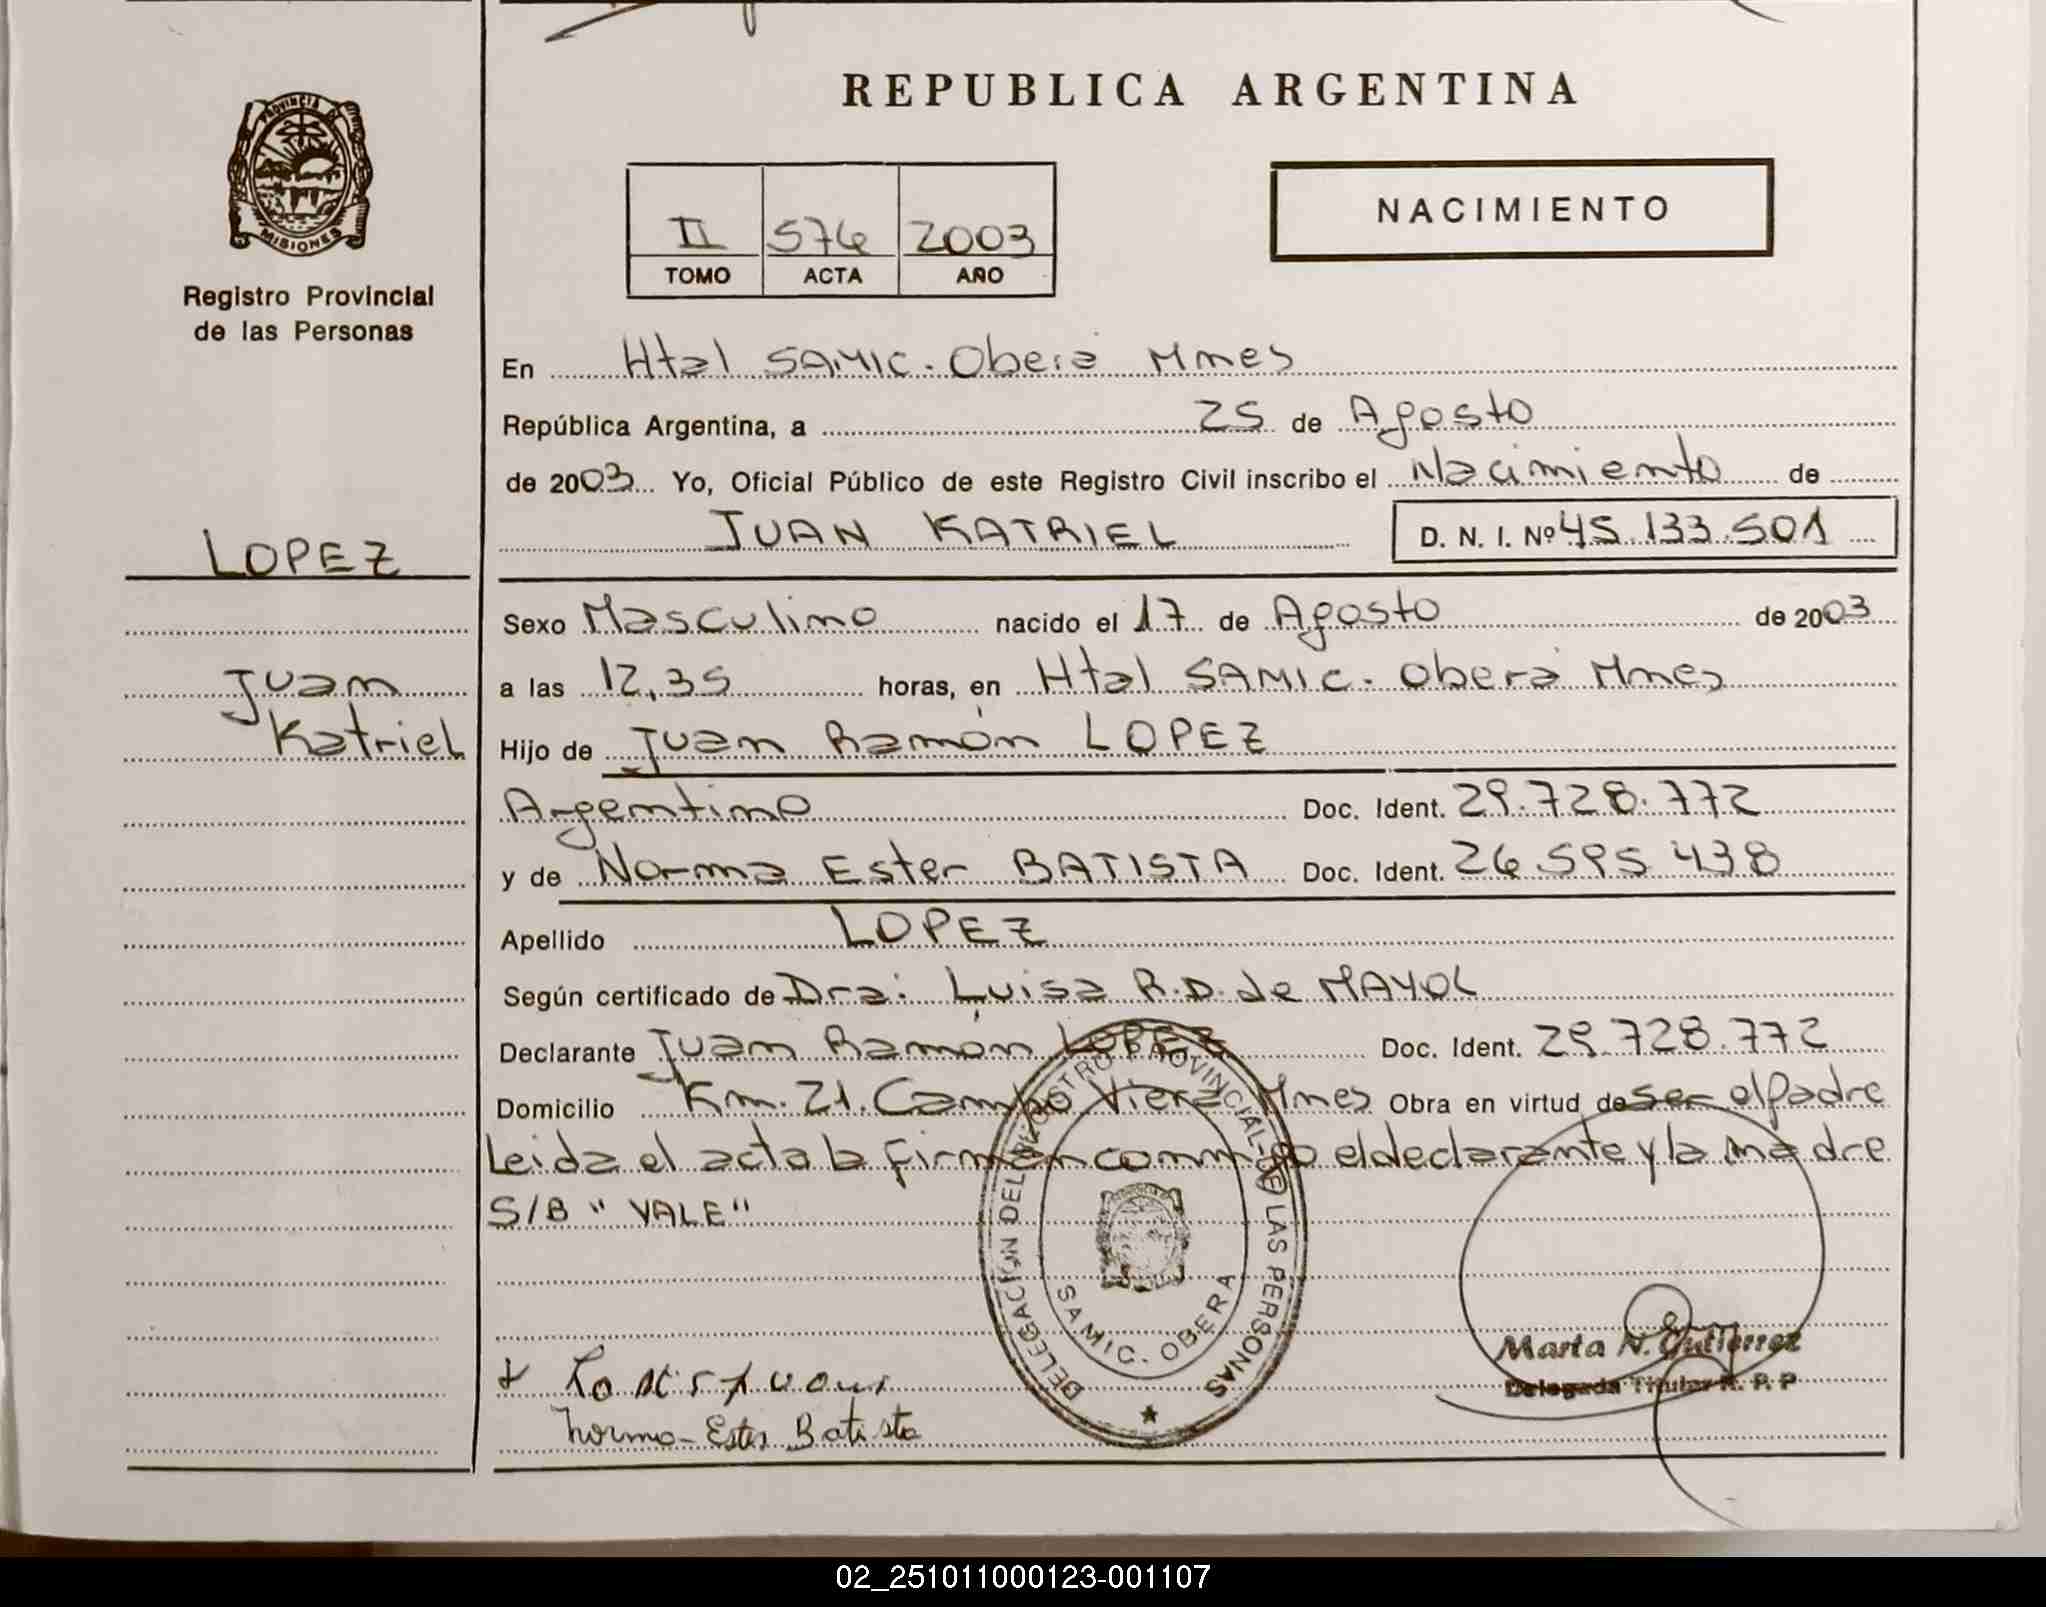 REPUBLICA ARGENTINA
PROVINCIA DE MISIONES
Registro Provincial
de las Personas
II 576 2003
TOMO ACTA AÑO
NACIMIENTO
En Htal SAMIC. Oberá Mnes
República Argentina, a 25 de Agosto
de 2003 Yo, Oficial Público de este Registro Civil inscribo el Nacimiento de
JUAN KATRIEL D. N. I. Nº 45.133.501
LOPEZ
Juan
Katriel
Sexo Masculino nacido el 17 de Agosto de 2003
a las 12,35 horas, en Htal SAMIC. Oberá Mnes
Hijo de Juan Ramón LOPEZ
Argentino Doc. Ident. 29.728.772
y de Norma Ester BATISTA Doc. Ident. 26.595.438
Apellido LOPEZ
Según certificado de Dra: Luisa R.D. de MAYOL
Declarante Juan Ramón LOPEZ Doc. Ident. 29.728.772
Domicilio Km. 21. Campo Viera Mnes Obra en virtud de ser el Padre
Leida el acta la firman conmigo el declarante y la madre
S/B " VALE"
DELEGACION DEL REGISTRO PROVINCIAL DE LAS PERSONAS
SAMIC. OBERA
Marta N. Gutierrez
Delegada Titular R. P. P
Norma Ester Batista
02_251011000123-001107